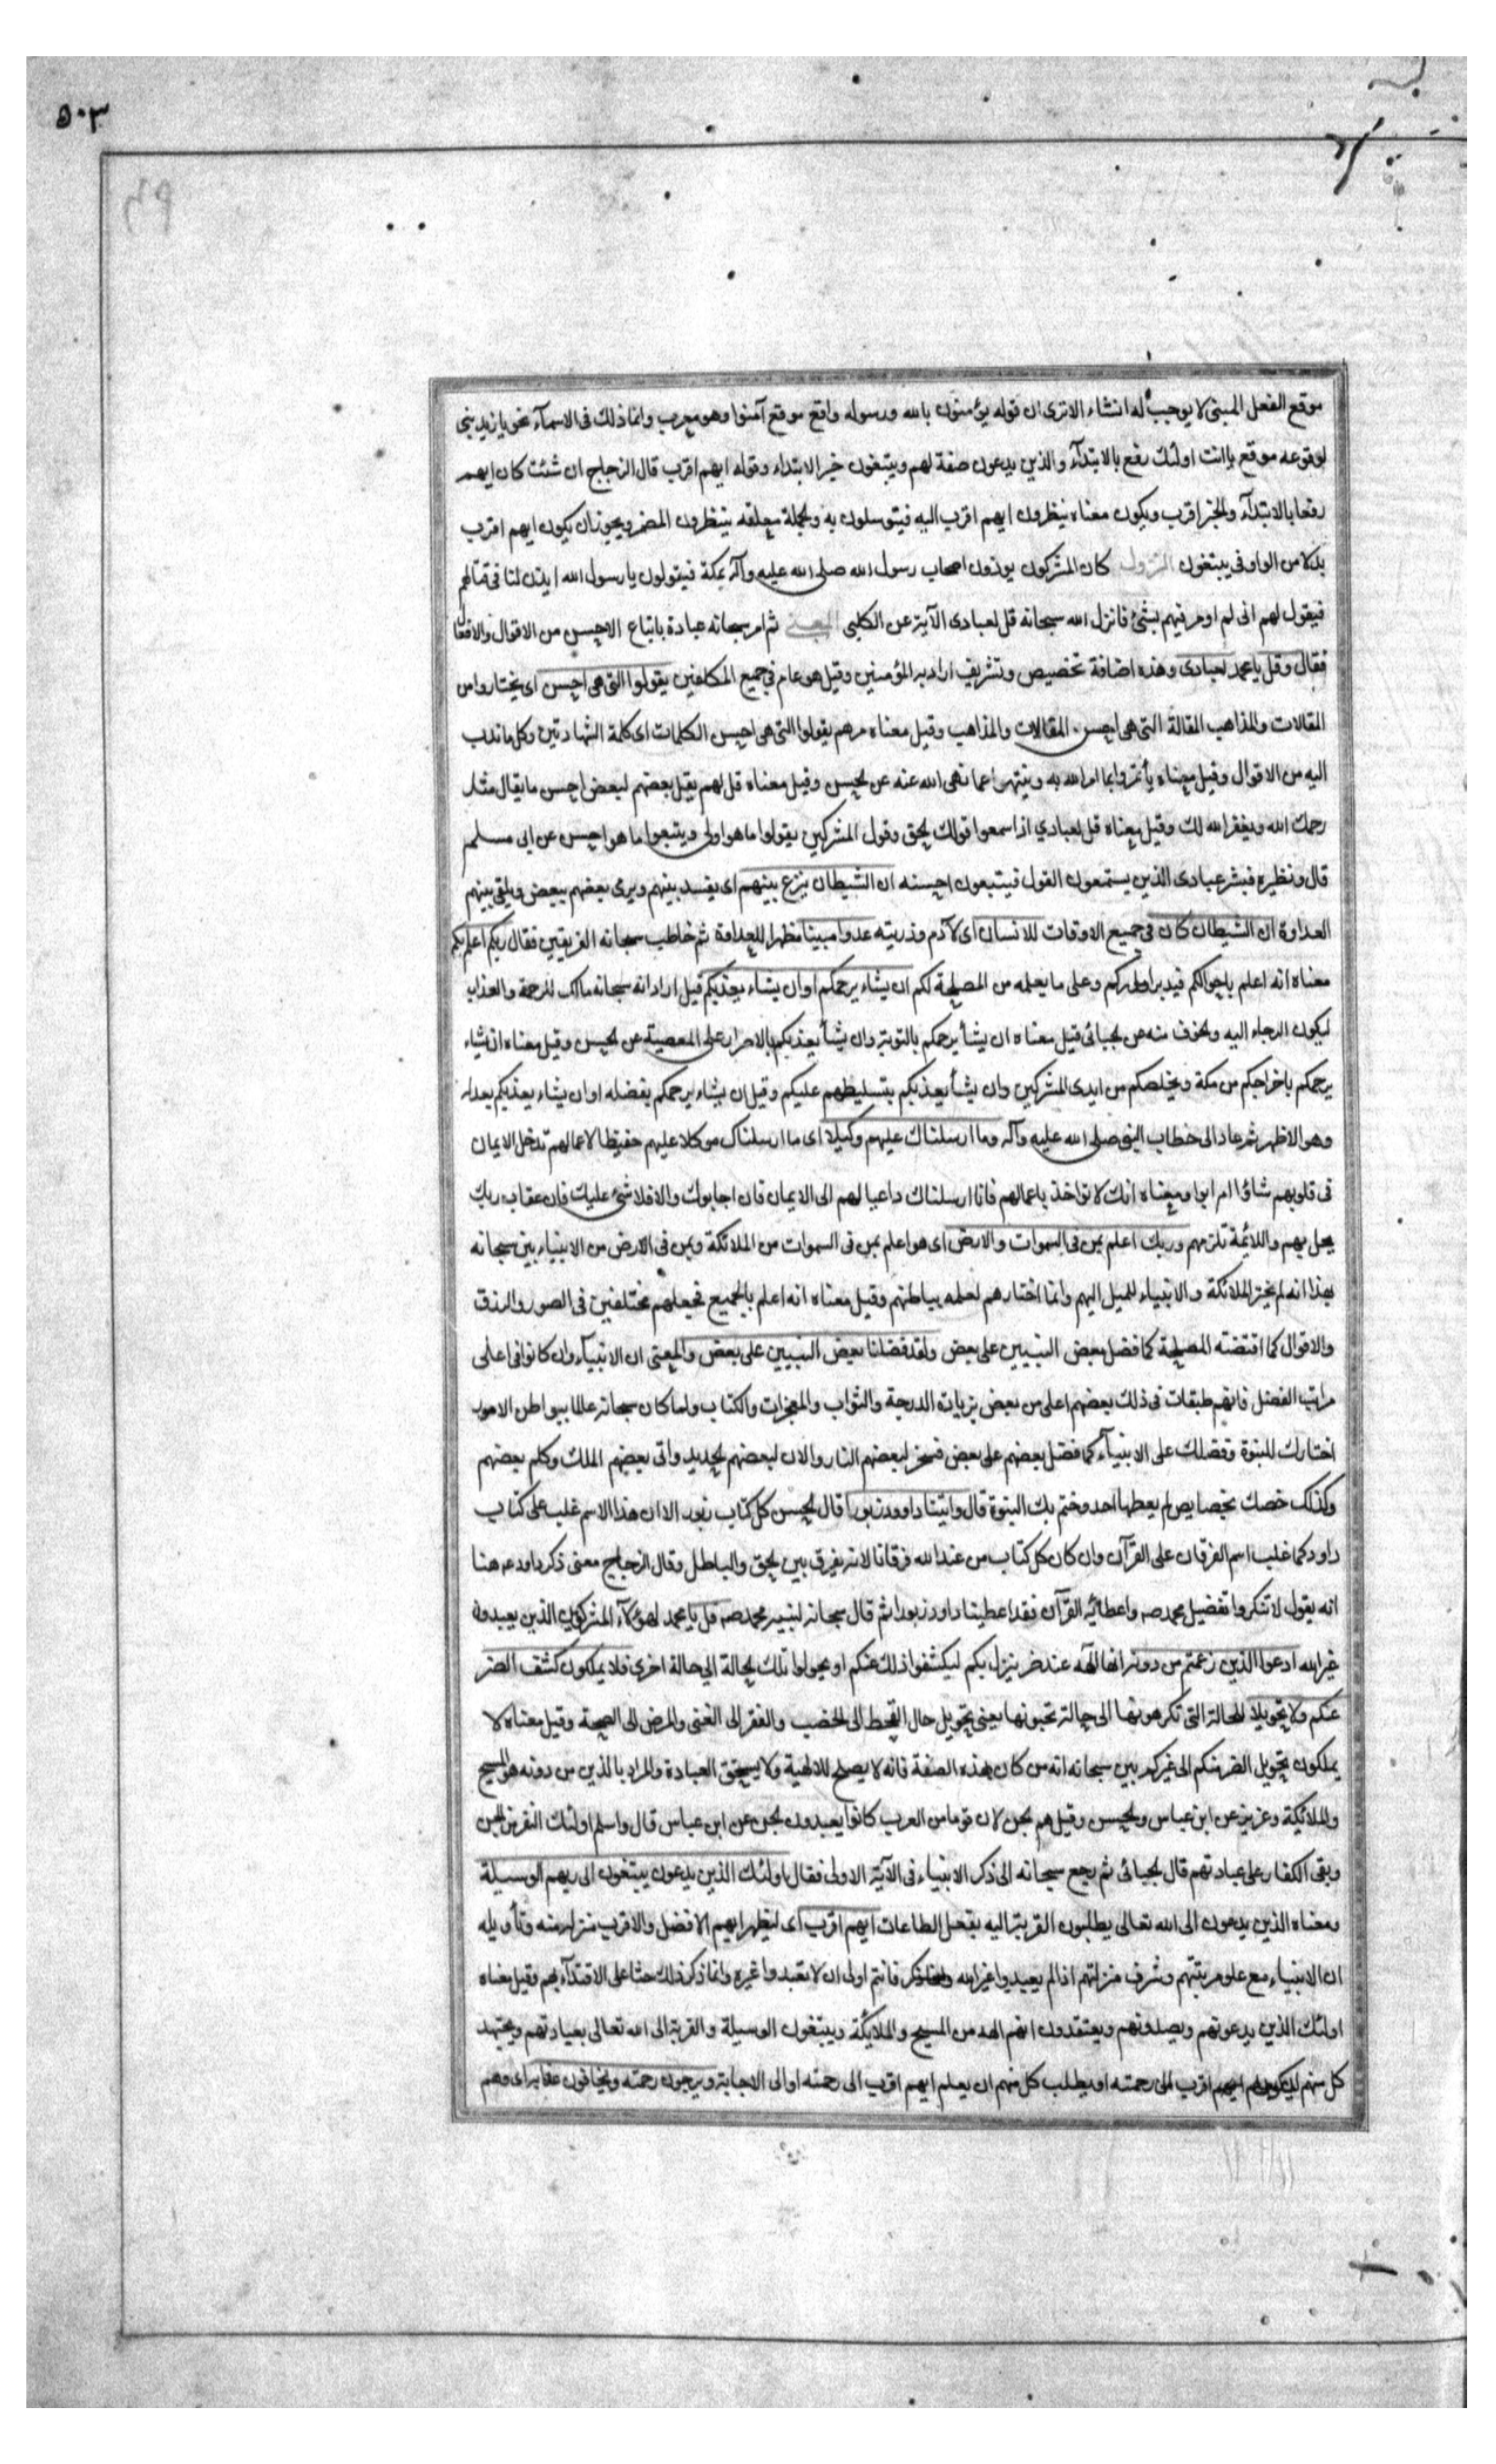 ٥٠٣
موقع الفعل المبنى لا يوجب له انشاء الا ترى ان قوله يؤمنون بالله ورسوله واقع موقع آمنوا وهو معرب وانما ذلك فى الاسمآء نحو يا زيد بنى
لوقوعه موقع يا انت اولئك رفع بالابتدآء والذين يدعون صفة لهم ويبتغون خبر الابتداء وقوله ايهم اقرب قال الزجاج ان شئت كان ايهم
رفعا بالابتدآء والخبر اقرب ويكون معناه ينظرون ايهم اقرب اليه فيتوسلون به والجملة معلقه بينظرون المضمر ويجوز ان يكون ايهم اقرب
بدلا من الواو فى يبتغون النزول كان المشركون يوذون اصحاب رسول الله صلى الله عليه وآله بمكة فيقولون يا رسول الله ايذن لنا فى قتالهم
فيقول لهم انى لم اومر فيهم بشئ فانزل الله سبحانه قل لعبادى الآية عن الكلبى المعنى ثم امر سبحانه عبادة باتباع الاحسن من الاقوال والافعال
فقال وقل يا محمد لعبادى وهذه اضافة تخصيص وتشريف اراد به المؤمنين وقيل هو عام فى جميع المكلفين يقولوا التى هى احسن اى يختاروا من
المقالات والمذاهب المقالة التى هى احسن المقالات والمذاهب وقيل معناه مرهم يقولوا التى هى احسن الكلمات اى كلمة الشهادتين وكل ما ندب
اليه من الاقوال وقيل معناه يأتمروا بما امر الله به وينتهوا عما نهى الله عنه عن الحسن وقيل معناه قل لهم يقل بعضهم لبعض احسن ما يقال مثل
رحمك الله ويغفر الله لك وقيل معناه قل لعبادي اذا سمعوا قولك الحق وقول المشركين يقولوا ما هو اولى ويتبعوا ما هو احسن عن ابى مسلم
قال ونظيره فبشر عبادى الذين يستمعون القول فيتبعون احسنه ان الشيطان ينزع بينهم اى يفسد بينهم ويرى بعضهم ببعض ويلقى بينهم
العداوة ان الشيطان كان فى جميع الاوقات للانسان اى لآدم وذريته عدوا مبينا مظهرا للعداوة ثم خاطب سبحانه الفريقين فقال ربكم اعلم بكم
معناه انه اعلم باحوالكم فيدبر اموركم وعلى ما يعلمه من المصلحة لكم ان يشاء يرحمكم او ان يشاء يعذبكم قيل اراد انه سبحانه مالك للرحمة والعذاب
ليكون الرجاء اليه والخوف منه عن الجبائى قيل معناه ان يشأ يرحمكم بالتوبة وان يشأ يعذبكم بالاصرار على المعصية عن الحسن وقيل معناه ان يشاء
يرحمكم باخراجكم من مكة ويخلصكم من ايدى المشركين وان يشأ يعذبكم بتسليطهم عليكم وقيل ان يشاء يرحمكم بفضله او ان يشاء يعذبكم بعدله
وهو الاظهر ثم عاد الى خطاب النبى صلى الله عليه وآله وما ارسلناك عليهم وكيلا اى ما ارسلناك موكلا عليهم حفيظا لاعمالهم تدخل الايمان
فى قلوبهم شاؤا ام ابوا ومعناه انك لا تواخذ باعمالهم فانا ارسلناك داعيا لهم الى الايمان فان اجابوك والا فلا شئ عليك فان عقاب ربك
يحل بهم واللائمة تلزمهم وربك اعلم بمن فى السموات والارض اى هو اعلم بمن فى السموات من الملائكة وبمن فى الارض من الانبياء بين سبحانه
بهذا انه لم يختر الملائكة والانبياء للميل اليهم وانما اختارهم لعلمه بباطنهم وقيل معناه انه اعلم بالجميع فجعلهم مختلفين فى الصور والرزق
والاقوال كما اقتضته المصلحة كما فضل بعض النبيين على بعض ولقد فضلنا بعض النبيين على بعض والمعنى ان الانبيآء وان كانوا فى اعلى
مراتب الفضل فانهم طبقات فى ذلك بعضهم اعلى من بعض بزيادة الدرجة والثواب والمعجزات والكتاب ولما كان سبحانه عالما ببواطن الامور
اختارك للنبوة وفضلك على الانبيآء كما فضل بعضهم على بعض فسخر لبعضهم النار والان لبعضهم الحديد واتى بعضهم الملك وكلم بعضهم
وكذلك خصك بخصايص لم يعطها احد وختم بك النبوة قال واتينا داوود زبورا قال الحسن كل كتاب زبور الا ان هذا الاسم غلب على كتاب
داود كما غلب اسم الفرقان على القرآن وان كان كل كتاب من عند الله فرقانا لانه يفرق بين الحق والباطل وقال الزجاج معنى ذكر داود عم هنا
انه يقول لا تنكروا تفضيل محمد صه واعطائه القرآن فقد اعطينا داود زبورا ثم قال سبحانه لنبيه محمد صه قل يا محمد لهؤلآء المشركين الذين يعبدون
غير الله ادعوا الذين زعمتم من دونه انها آلهة عند ضر ينزل بكم ليكشفوا ذلك عنكم او يحولوا تلك الحالة الى حالة اخرى فلا يملكون كشف الضر
عنكم ولا تحويلا للحالة التى تكرهونها الى حالة تحبونها يعنى تحويل حال القحط الى الخصب والفقر الى الغنى والمرض الى الصحة وقيل معناه لا
يملكون تحويل الضر عنكم الى غيركم بين سبحانه انه من كان بهذه الصفة فانه لا يصلح للالهية ولا يستحق العبادة والمراد بالذين من دونه هو المسيح
والملائكة وعزير عن ابن عباس والحسن وقيل هم الجن لان قوما من العرب كانوا يعبدون الجن عن ابن عباس قال واسلم اولئك النفر من الجن
وبقى الكفار على عبادتهم قال الجبائى ثم رجع سبحانه الى ذكر الانبياء فى الآية الاولى فقال اولئك الذين يدعون يبتغون الى ربهم الوسيلة
ومعناه الذين يدعون الى الله تعالى يطلبون القربة اليه بفعل الطاعات ايهم اقرب اى ليظهر ايهم الافضل والاقرب منزلة منه وتأويله
ان الانبياء مع علو مرتبتهم وشرف منزلتهم اذا لم يعبدوا غير الله فانتم اولى ان لا تعبدوا غيره وانما ذكر ذلك حثا على الاقتدآء بهم وقيل معناه
اولئك الذين يدعونهم ويعبدونهم ويعتقدون انهم الهه من المسيح والملايكة ويبتغون الوسيلة والقربة الى الله تعالى بعبادتهم ويجتهد
كل منهم ليكون ايهم اقرب الى رحمته او يطلب كل منهم ان يعلم ايهم اقرب الى رحمته او الى الاجابة ويرجون رحمته ويخافون عذابه اى وهم